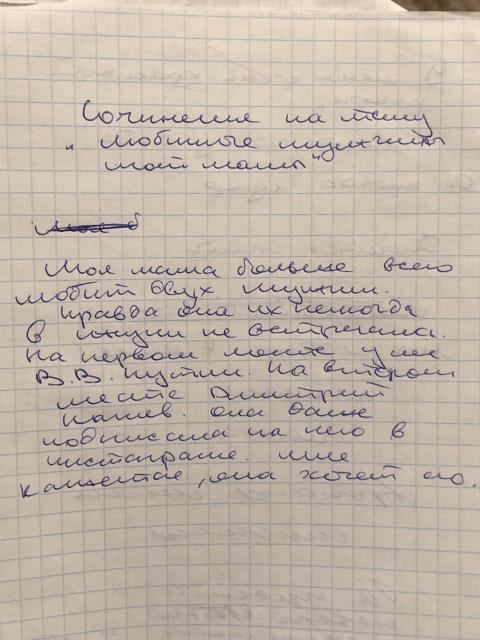 Сочинение на тему
„ Любимые мужчины
моей мамы"
Моя мама больше всего
любит двух мужчин.
правда она их никогда
в жизни не встречала.
На первом месте у нее
В.В. Путин. На втором
месте Дмитрий
Нагиев. она даже
подписана на него в
инстаграме. мне
кажется, она хочет его.